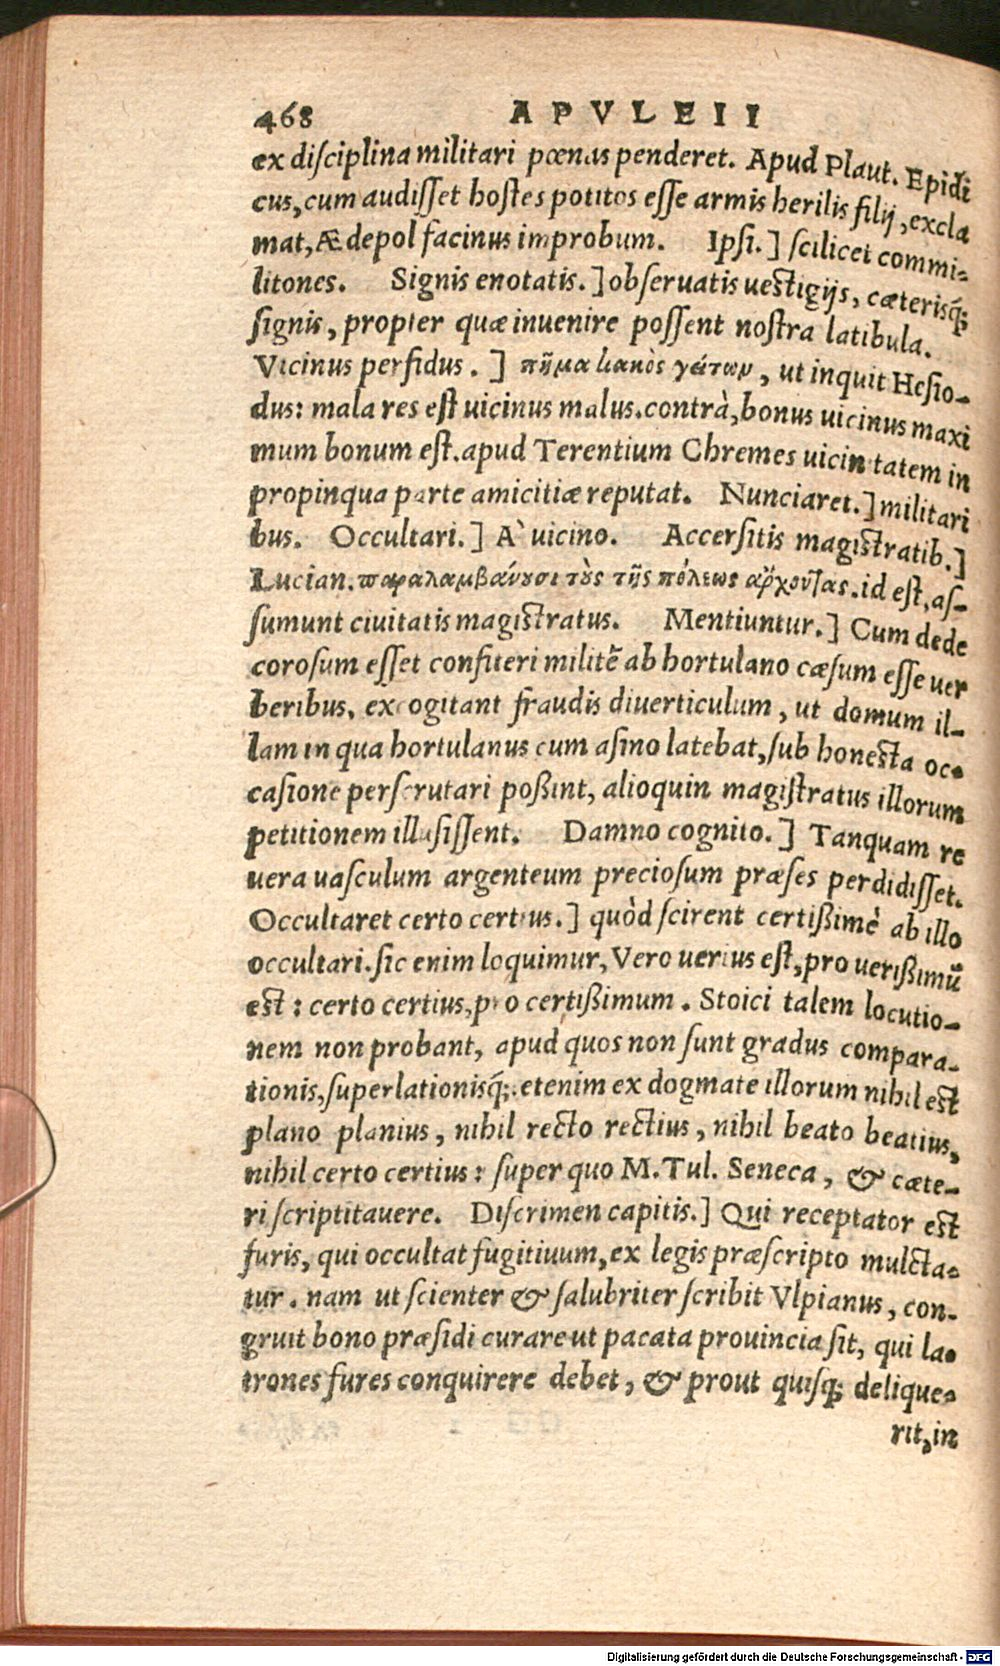 468 APVLEII
ex disciplina militari pœnas penderet. Apud Plaut. Epidi
cus, cum audisset hostes potitos esse armis herilis filij, excla
mat, Ædepol facinus improbum. Ipsi.] scilicet commi-
litones. Signis enotatis.] obseruatis uestigijs, cæterisq́;
signis, propter quæ inuenire possent nostra latibula.
Vicinus perfidus.] πῆμα κακὸς γείτων, ut inquit Hesio-
dus: mala res est uicinus malus. contrà, bonus uicinus maxi
mum bonum est. apud Terentium Chremes uicinitatem in
propinqua parte amicitiæ reputat. Nunciaret.] militari
bus. Occultari.] A` uicino. Accersitis magistratib.]
Lucian. παραλαμβάνουσι τοὺς τῆς πόλεως ἄρχοντας. id est, as-
sumunt ciuitatis magistratus. Mentiuntur.] Cum dede
corosum esset confiteri militẽ ab hortulano cæsum esse uer
beribus, excogitant fraudis diuerticulum, ut domum il-
lam in qua hortulanus cum asino latebat, sub honesta oc-
casione perscrutari poßint, alioquin magistratus illorum
petitionem illusissent. Damno cognito.] Tanquam re
uera uasculum argenteum preciosum præses perdidisset.
Occultaret certo certius.] quòd scirent certißimè ab illo
occultari. sic enim loquimur, Vero uerius est, pro uerißimũ
est: certo certius, pro certißimum. Stoici talem locutio-
nem non probant, apud quos non sunt gradus compara-
tionis, superlationisq́;. etenim ex dogmate illorum nihil est
plano planius, nihil recto rectius, nihil beato beatius,
nihil certo certius: super quo M. Tul. Seneca, & cæte-
ri scriptitauere. Discrimen capitis.] Qui receptator est
furis, qui occultat fugitiuum, ex legis præscripto mulcta-
tur. nam ut scienter & salubriter scribit Vlpianus, con-
gruit bono præsidi curare ut pacata prouincia sit, qui la-
trones fures conquirere debet, & prout quisq; delique-
rit, in
Digitalisierung gefördert durch die Deutsche Forschungsgemeinschaft - DFG